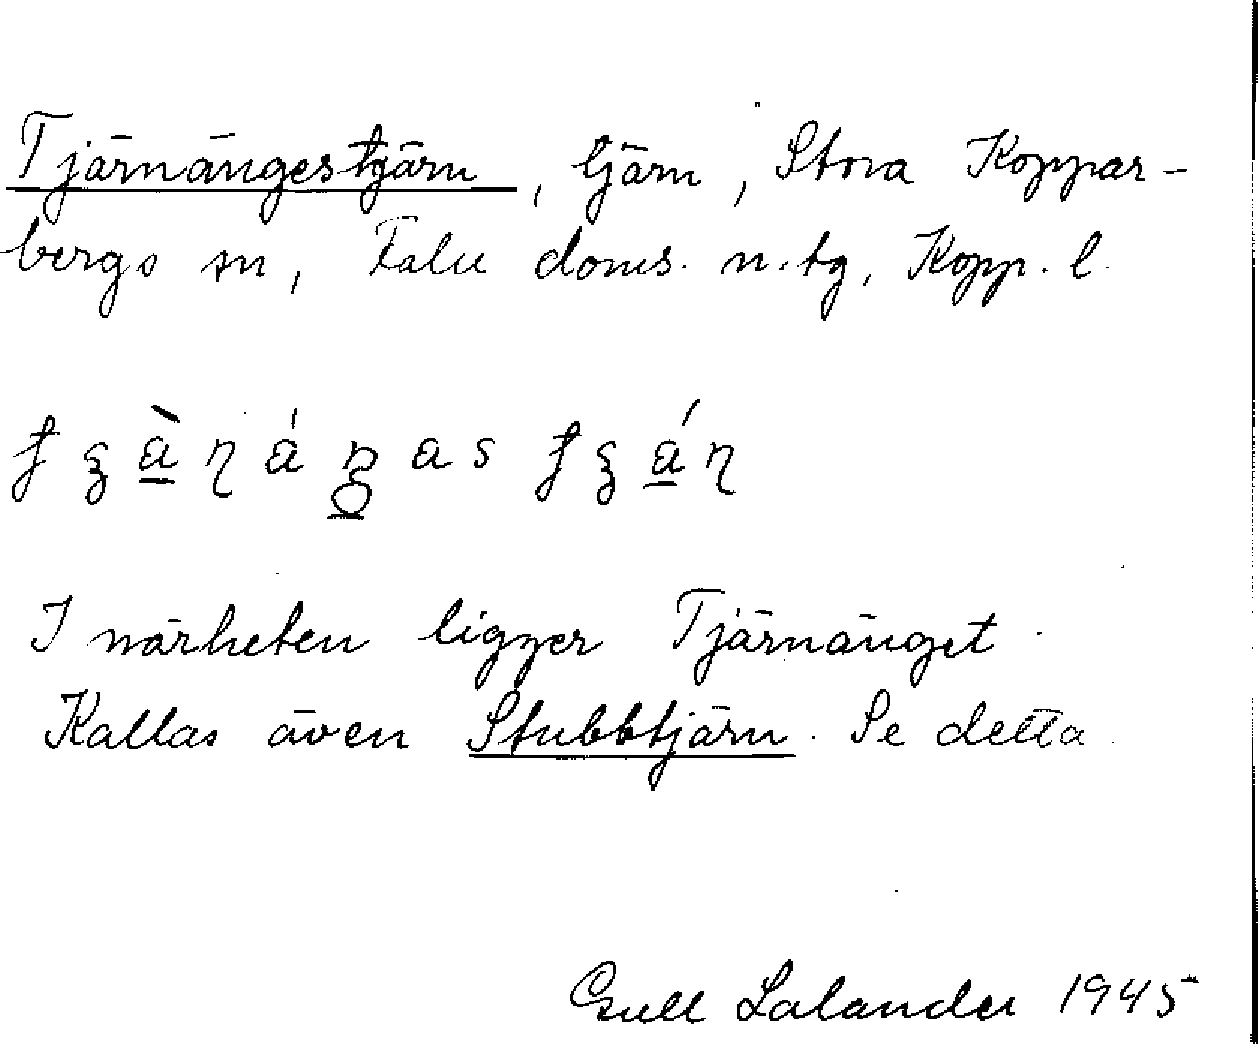 Tjärnängestjärn, tjärn, Stora Koppar-
bergs sn, Falu doms. n. tg, Kopp. l.
I närheten ligger Tjärnänget.
Kallas även Stubbtjärn. Se detta.
Gull Lalander 1945